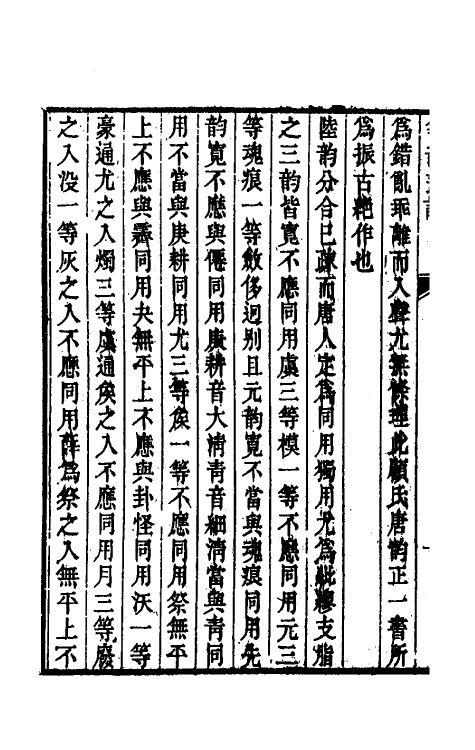 爲錯亂乖離而入聲尤無條理此顧氏唐韵正一書所
爲振古絶作也
陸韵分合已疎而唐人定爲同用獨用尤爲紕繆支脂
之三韵皆寬不應同用虞三等模一等不應同用元三
等魂痕一等斂侈迥别且元韵寬不當與魂痕同用先
韵寬不應與僊同用庚耕音大清青音細清當與青同
用不當與庚耕同用尤三等矦一等不應同用祭無平
上不應與霽同用夬無平上不應與卦怪同用沃一等
豪通尤之入燭三等虞通矦之入不應同用月三等廢
之入没一等灰之入不應同用薛爲祭之入無平上不